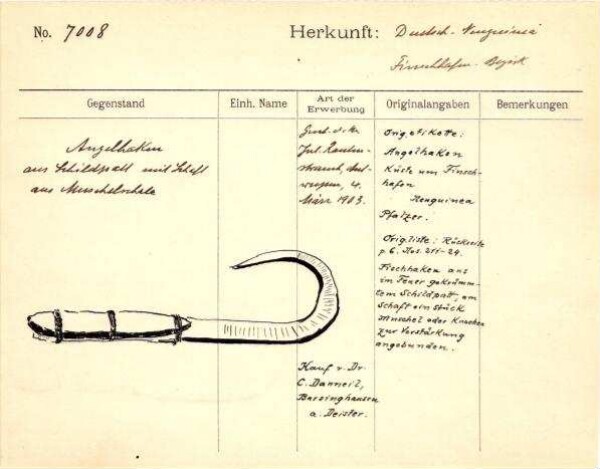 No. 7008
Herkunft: Deutsch-Neuguinea
Finschhafen-Bezirk
Gegenstand
Einh. Name
Art der
Erwerbung
Originalangaben
Bemerkungen
Angelhaken
aus Schildpatt mit Schaft
aus Muschelschale
Jul. Rauten-
strauch, Ant-
werpen, 4.
März 1903.
Orig. Etikette:
Angelhaken
Küste um Finsch-
hafen
Neuguinea
Pfalzer.
Orig. liste: Rückseite
p. 6. Nos. 211-24.
Fischhaken aus
im Feuer gekrümm-
tem Schildpatt, am
Schaft ein Stück
Muschel oder Knochen
zur Verstärkung
angebunden.
Kauf v. Dr.
C. Danneil,
Barsinghausen
a. Deister.